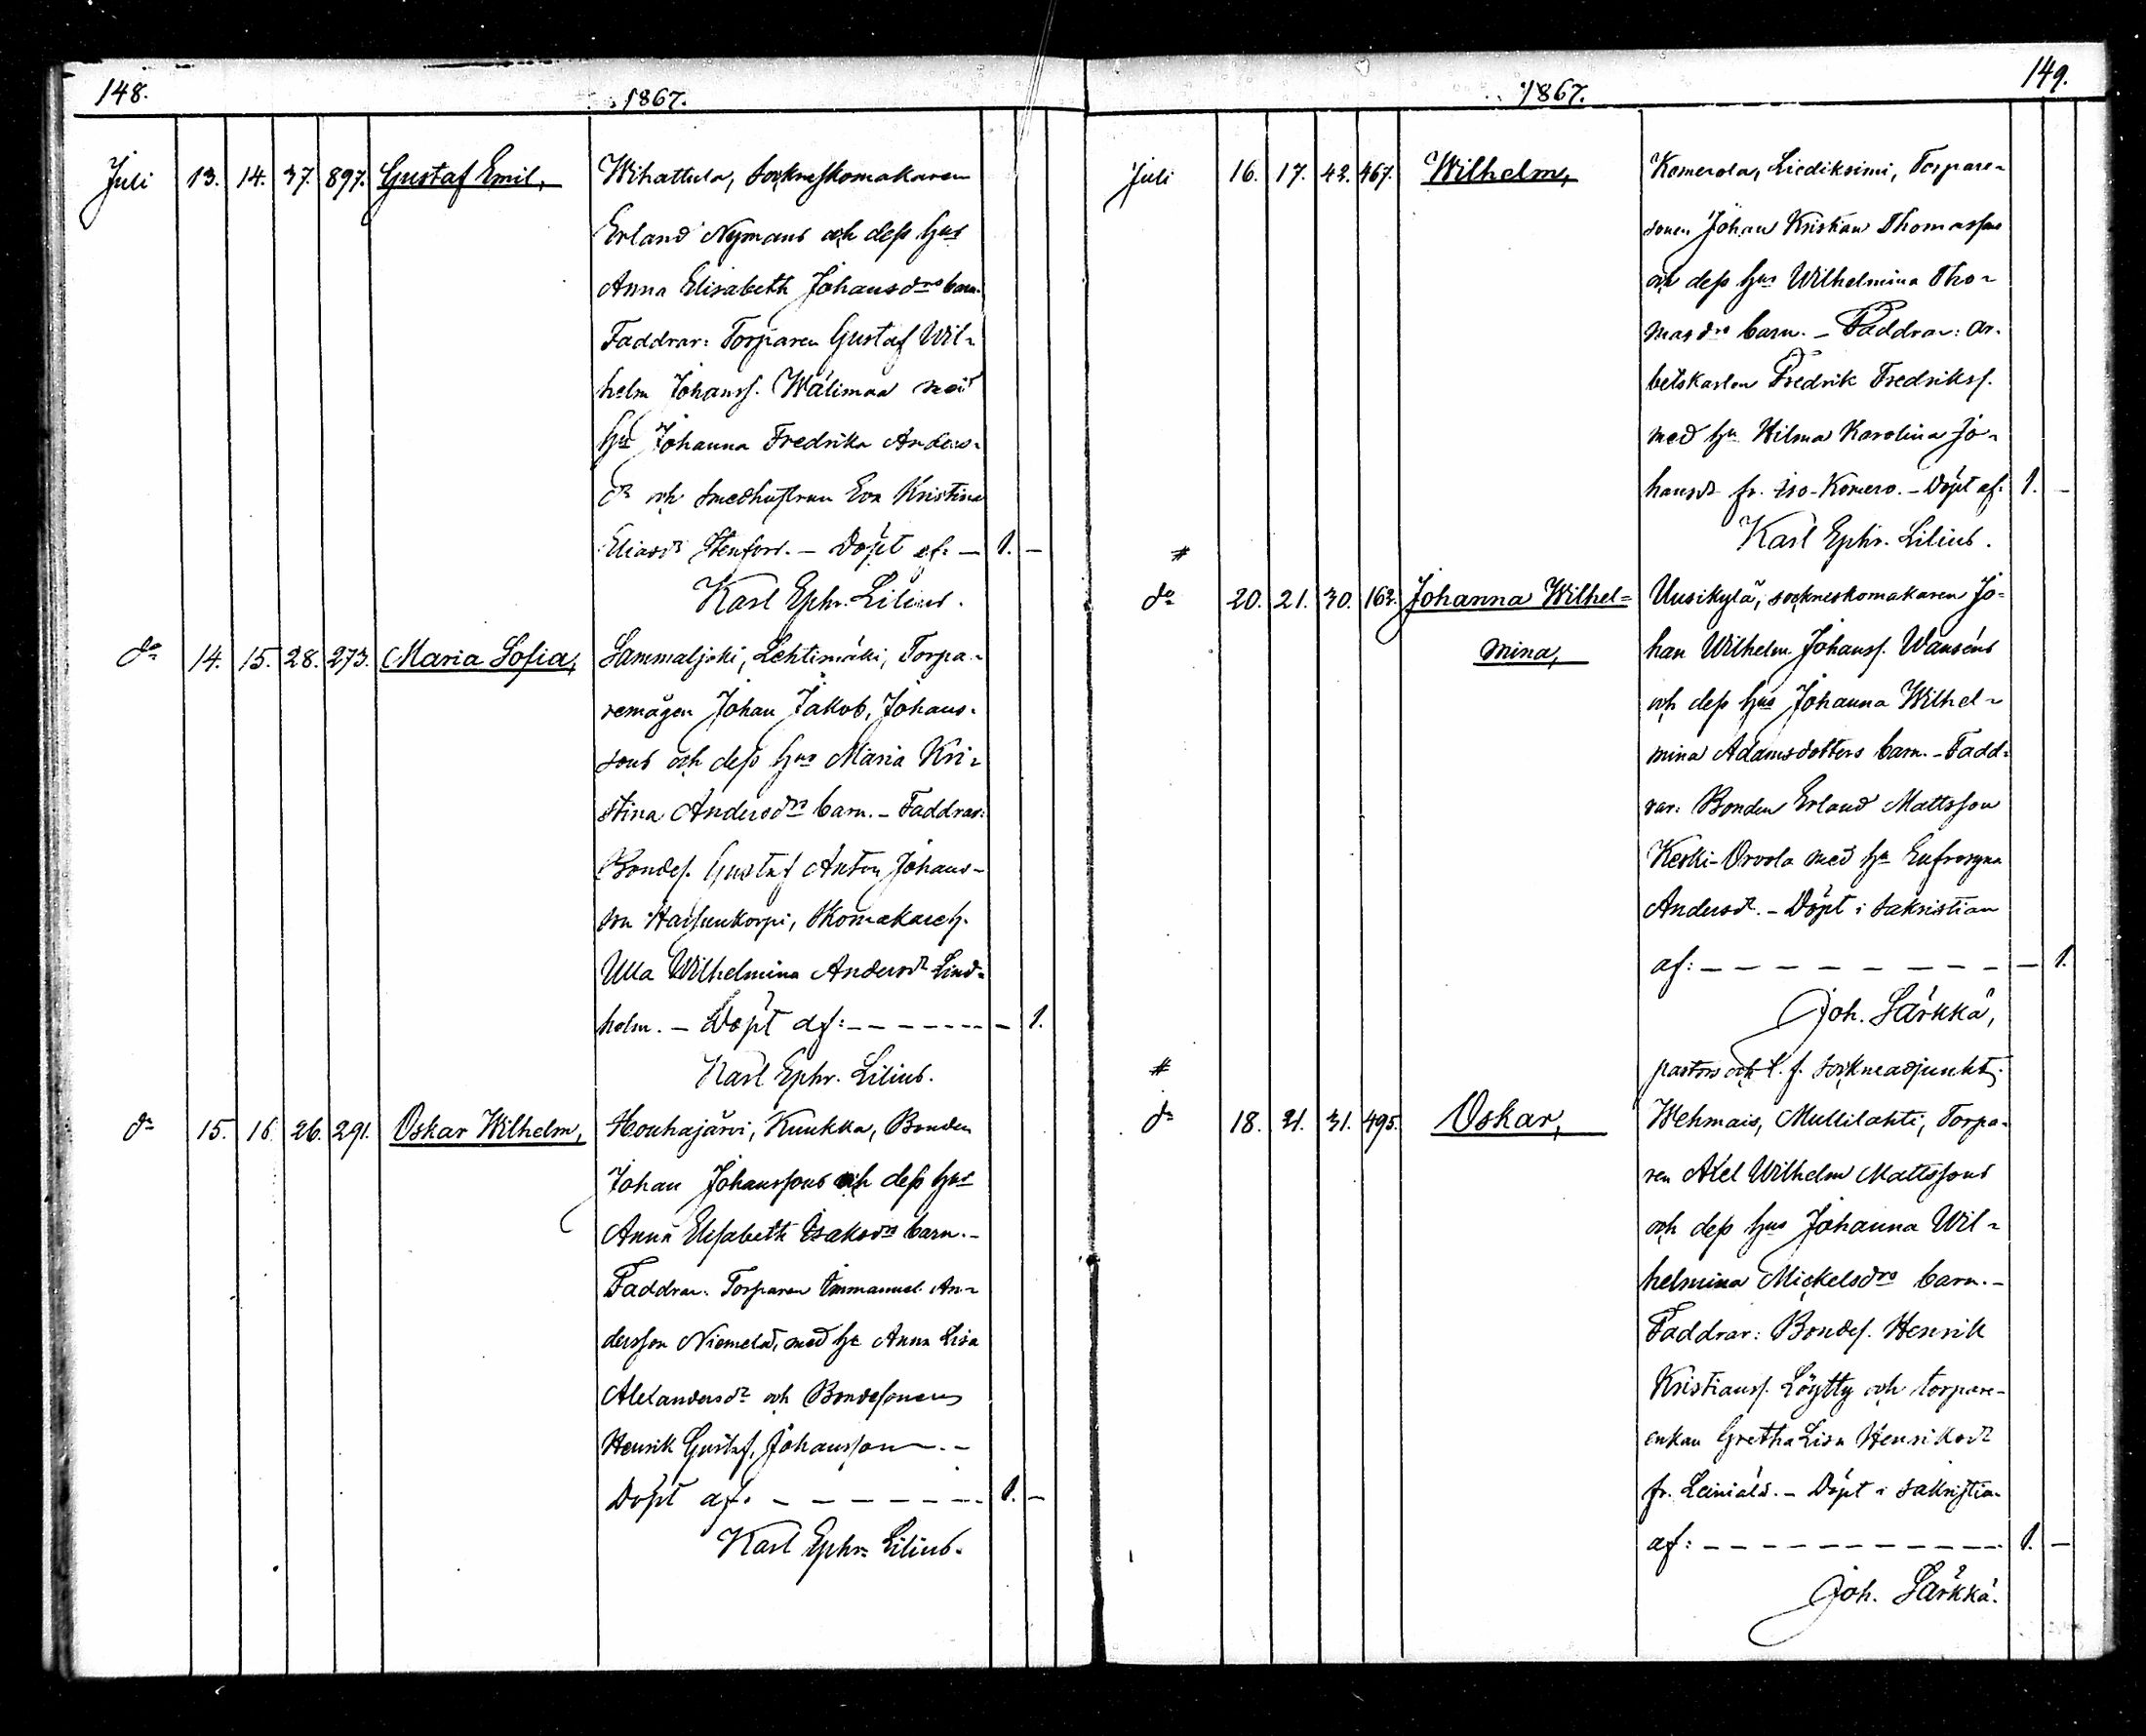 148.
1867.
Juli 13. 14. 37. 897. Gustaf Emil, Wihattula, sockneskomakaren
Erland Nymans och dess hus
Anna Elisabeth Johansdrs barn.
Faddrar: Torparen Gustaf Wil-
helm Johanss. Wälimaa med
hu Johanna Fredrika Anders-
dr och Smedhustrun Eva Kristina
Eliasdr Stenfors. – Döpt af: – 1. –
Karl Ephr. Lilius.
do 14. 15. 28. 273. Maria Sofia, Sammaljoki, Lehtimäki, Torpa-
remågen Johan Jakob Johans-
sons och dess hus Maria Kri-
stina Andersdrs barn. – Faddrar:
Bondes. Gustaf Anton Johans-
son, Skomakareh.
Ulla Wilhelmina Andersdr Lind-
holm. – Döpt af: – – – – – – – – 1.
Karl Ephr. Lilius.
do 15. 16. 26. 291. Oskar Wilhelm, Houhajärvi, Kuukka, Bonden
Johan Johanssons och dess hus
Anna Elisabeth Isaksdrs barn. –
Faddrar: Torparen Immanuel An-
dersson Niemelä, med hu Anna Lisa
Alexandersdr och Bondesonen
Henrik Gustaf Johansson. –
Döpt af: – – – – – – – 1. –
Karl Ephr. Lilius.
149.
1867.
Juli 16. 17. 42. 467. Wilhelm, Komerola, Liediksimi, Torpare-
sonen Johan Kristian Thomassons
och dess hus Wilhelmina Tho-
masdrs barn. – Faddrar: ar-
betskarlen Fredrik Fredrikss.
med hu Wilma Karolina Jo-
hansdr fr. Iso-Komero. – Döpt af: 1. –
# Karl Ephr. Lilius.
do 20. 21. 30. 162. Johanna Wilhel= Uusikylä, sockneskomakaren Jo-
mina, han Wilhelm Johanss. Wanséns
och dess hus Johanna Wilhel-
mina Adamsdotters barn. – Fadd-
rar: Bonden Erland Mattsson
Keski-Orvola med hu Eufrosyna
Andersdr. – Döpt i sakristian
af: – – – – – – – – – 1.
Joh. Särkkä,
# pastors och t. f. sockneadjunkt.
do 18. 21. 31. 495. Oskar, Wehmais, Mullilahti, Torpa-
ren Axel Wilhelm Mattssons
och dess hus Johanna Wil-
helmina Mickelsdrs barn. –
Faddrar: Bondes. Henrik
Kristianss. Löytty och torpare-
enkan Gretha Lisa Henriksdr
fr. Leiniälä. – Döpt i sakristian
af: – – – – – – – – – – – 1. –
Joh. Särkkä.